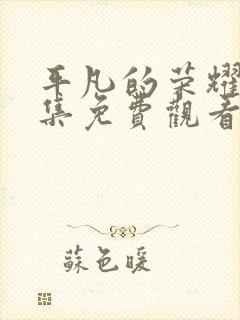 平凡的荣耀
集免費觀看
蘇色暖